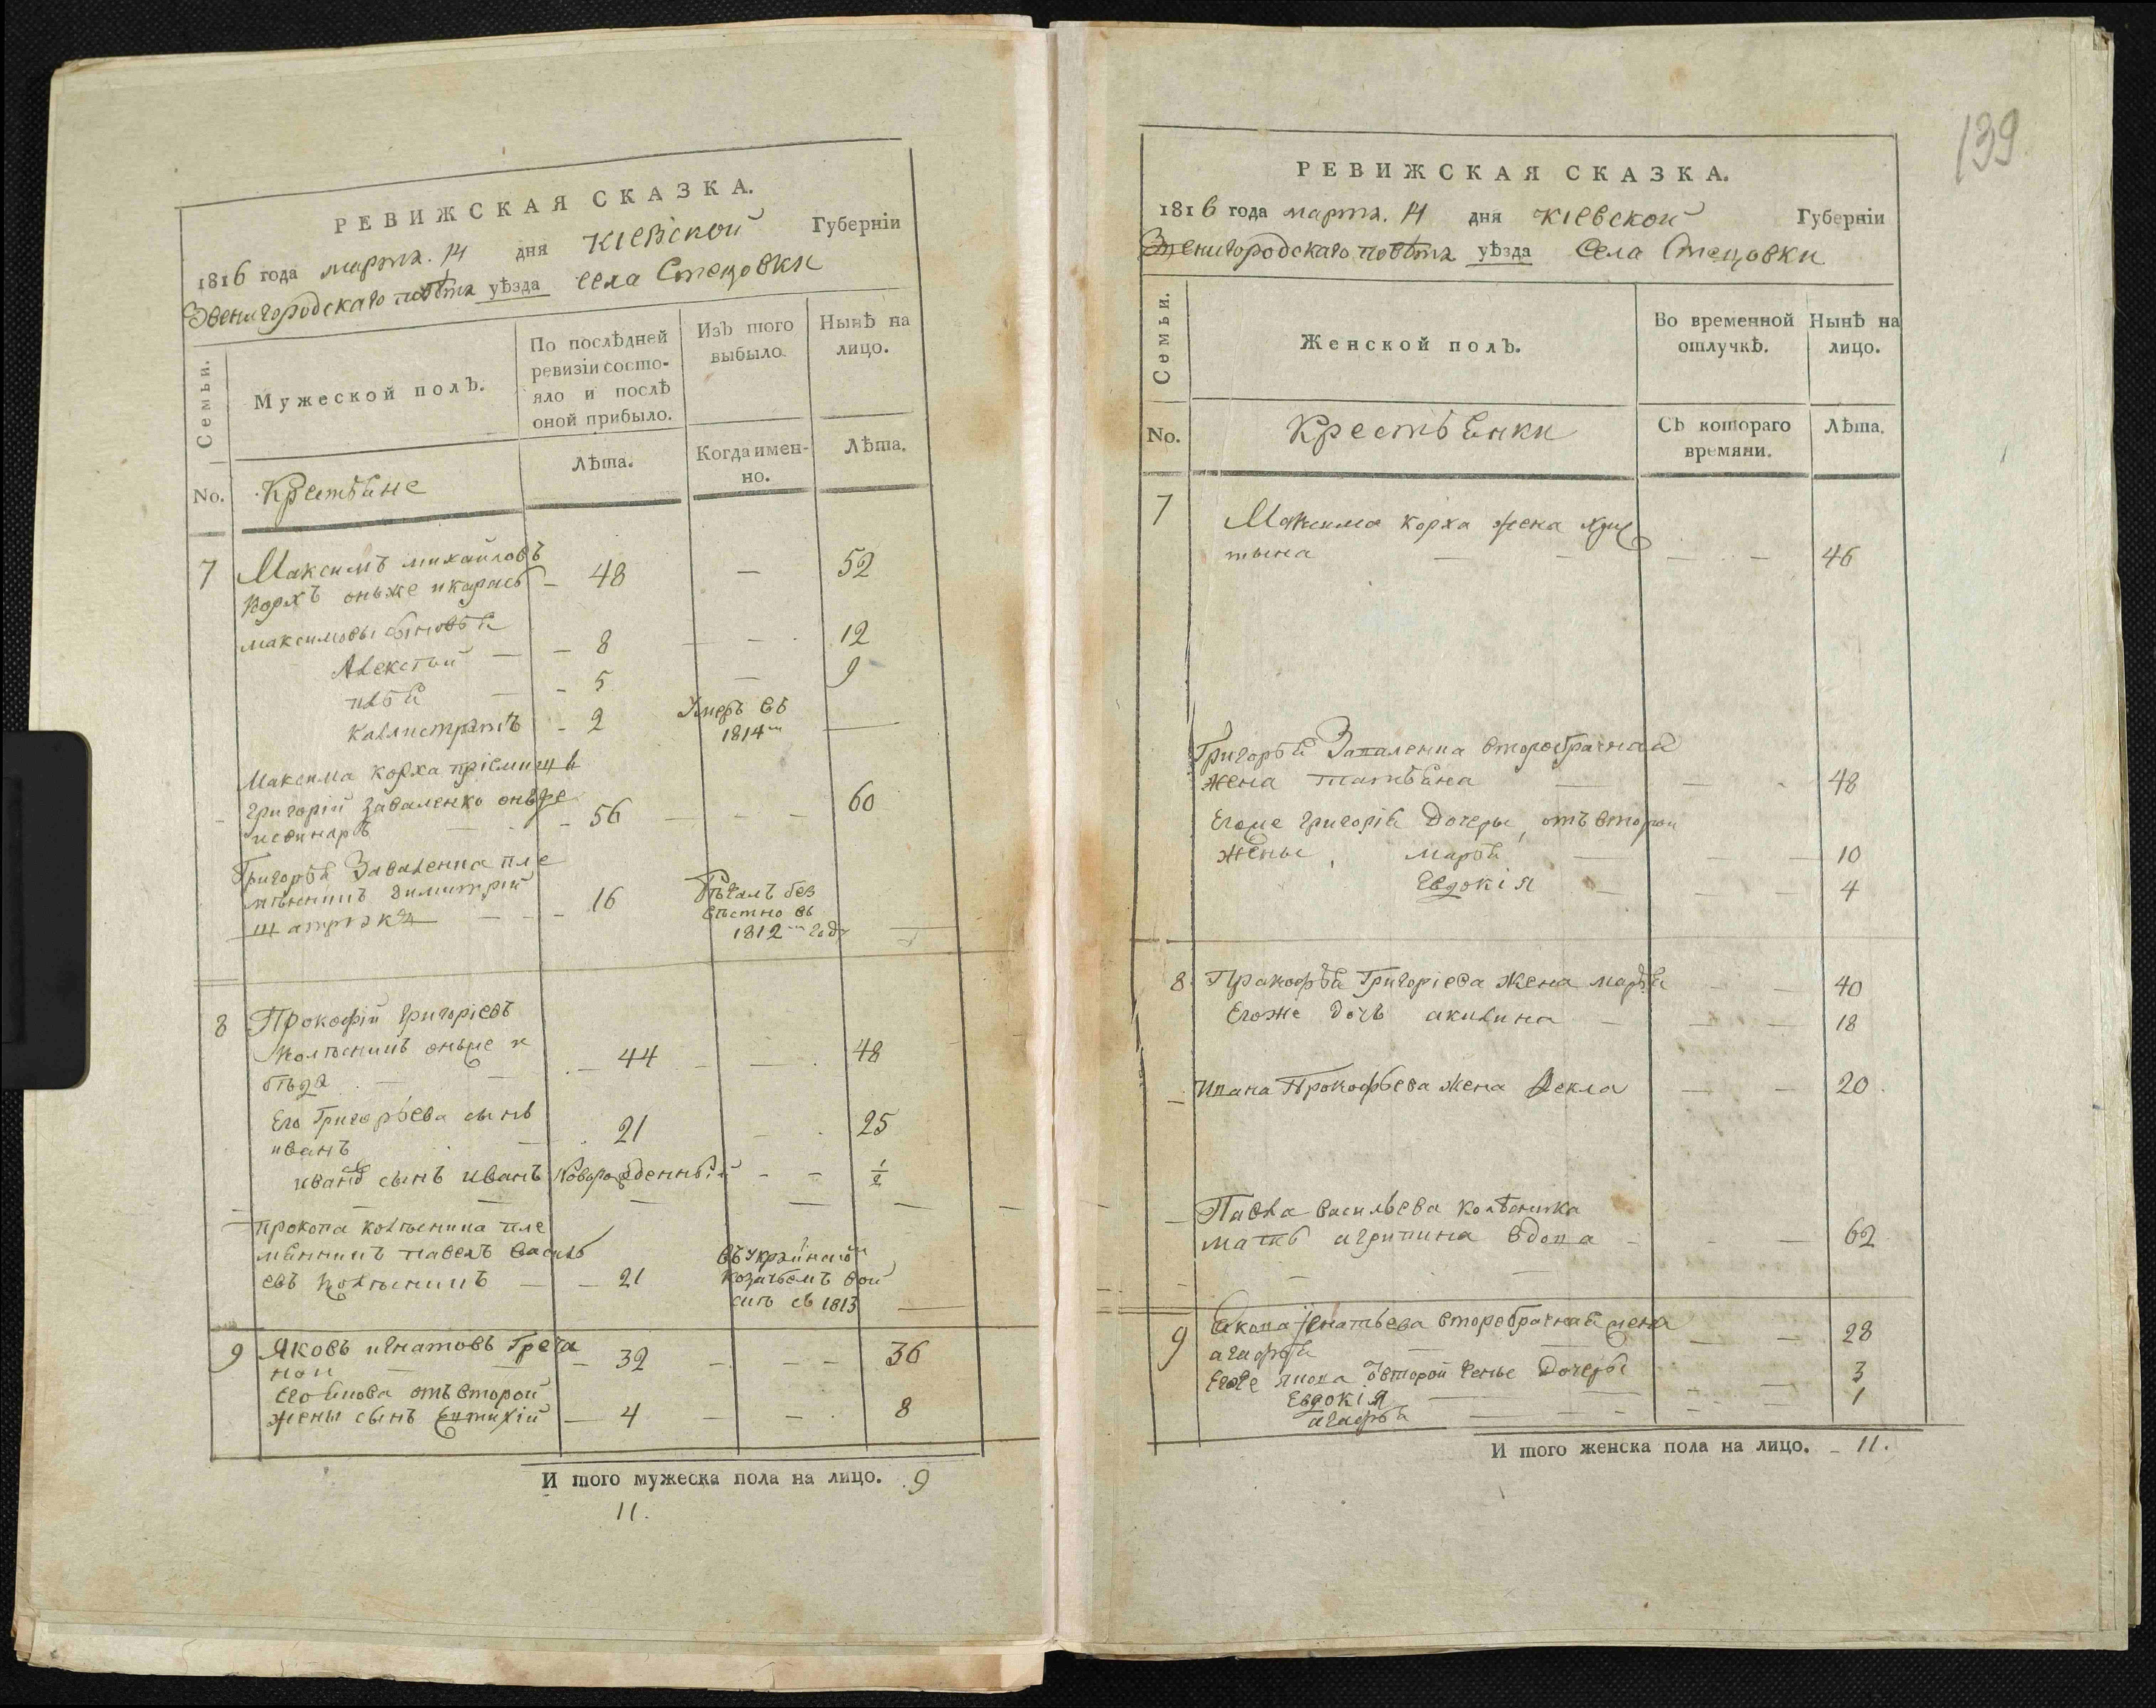 РЕВИЖСКАЯ СКАЗКА.
1816 года марта. 14 дня Кіевской Губерніи
Звенигородскаго повѣта уѣзда села Стецовки
Семьи.
Мужеской полъ.
По послѣдней
ревизіи состо-
яло и послѣ
оной прибыло.
Изъ того
выбыло.
Нынѣ на
лицо.
No.
Крестьяне
Лѣта.
Когда имен-
но.
Лѣта.
7 Максимъ михайловъ
Корхъ онъже икарась 48 — 52
максимовы сыновья
Алексѣй — 8 — 12
илья — 5 — 9
Калистратъ — 2 Умеръ въ
1814 —
Максима Корха пріемищъ
григорій Заваленко онъже
56 — 60
Григорья Заваленка пле
мѣнникъ димитрій 16 бѣжалъ без
вѣстно въ
1812 году —
8 Прокофій григоріевъ
Колѣсникъ онъже и 44 — 48
бѣда
Его Григорьева сынъ
иванъ — 21 — 25
ивана сынъ иванъ новорожденный — ½
прокопа колѣсника пле
мянникъ павелъ василь
евъ Колѣсникъ — 21
въ украинскомъ
козачьемъ вой
скѣ съ 1813 —
9 Яковъ игнатовъ Греча
ной — 32 — 36
Его якова отъ второй
жены сынъ Евтихій — 4 — 8
И того мужеска пола на лицо. 9
11.
139
РЕВИЖСКАЯ СКАЗКА.
1816 года марта. 14 дня Кіевской Губерніи
Звенигородскаго повѣта уѣзда Села Стецовки
Семьи.
Женской полъ.
Во временной
отлучкѣ.
Нынѣ на
лицо.
No.
Крестьянки
Съ котораго
времяни.
Лѣта.
7 Максима корха жена хрис
тына — 46
Григорья Заваленка второбрачная
жена татьяна — 48
Егоже григорія дочеры, отъ второй
жены, марья — 10
Евдокія — 4
8 Прокофья Григоріева жена марья — 40
Егоже дочь акилина — 18
Ивана Прокофьева жена Фекла — 20
Павла васильева колѣсника
мать агрипина вдова — 62
9 Якова Игнатьева второбрачная жена
агафья — 28
Егоже якова отъ второй жены дочеры
Евдокія — 3
агафья — 1
И того женска пола на лицо. 11.